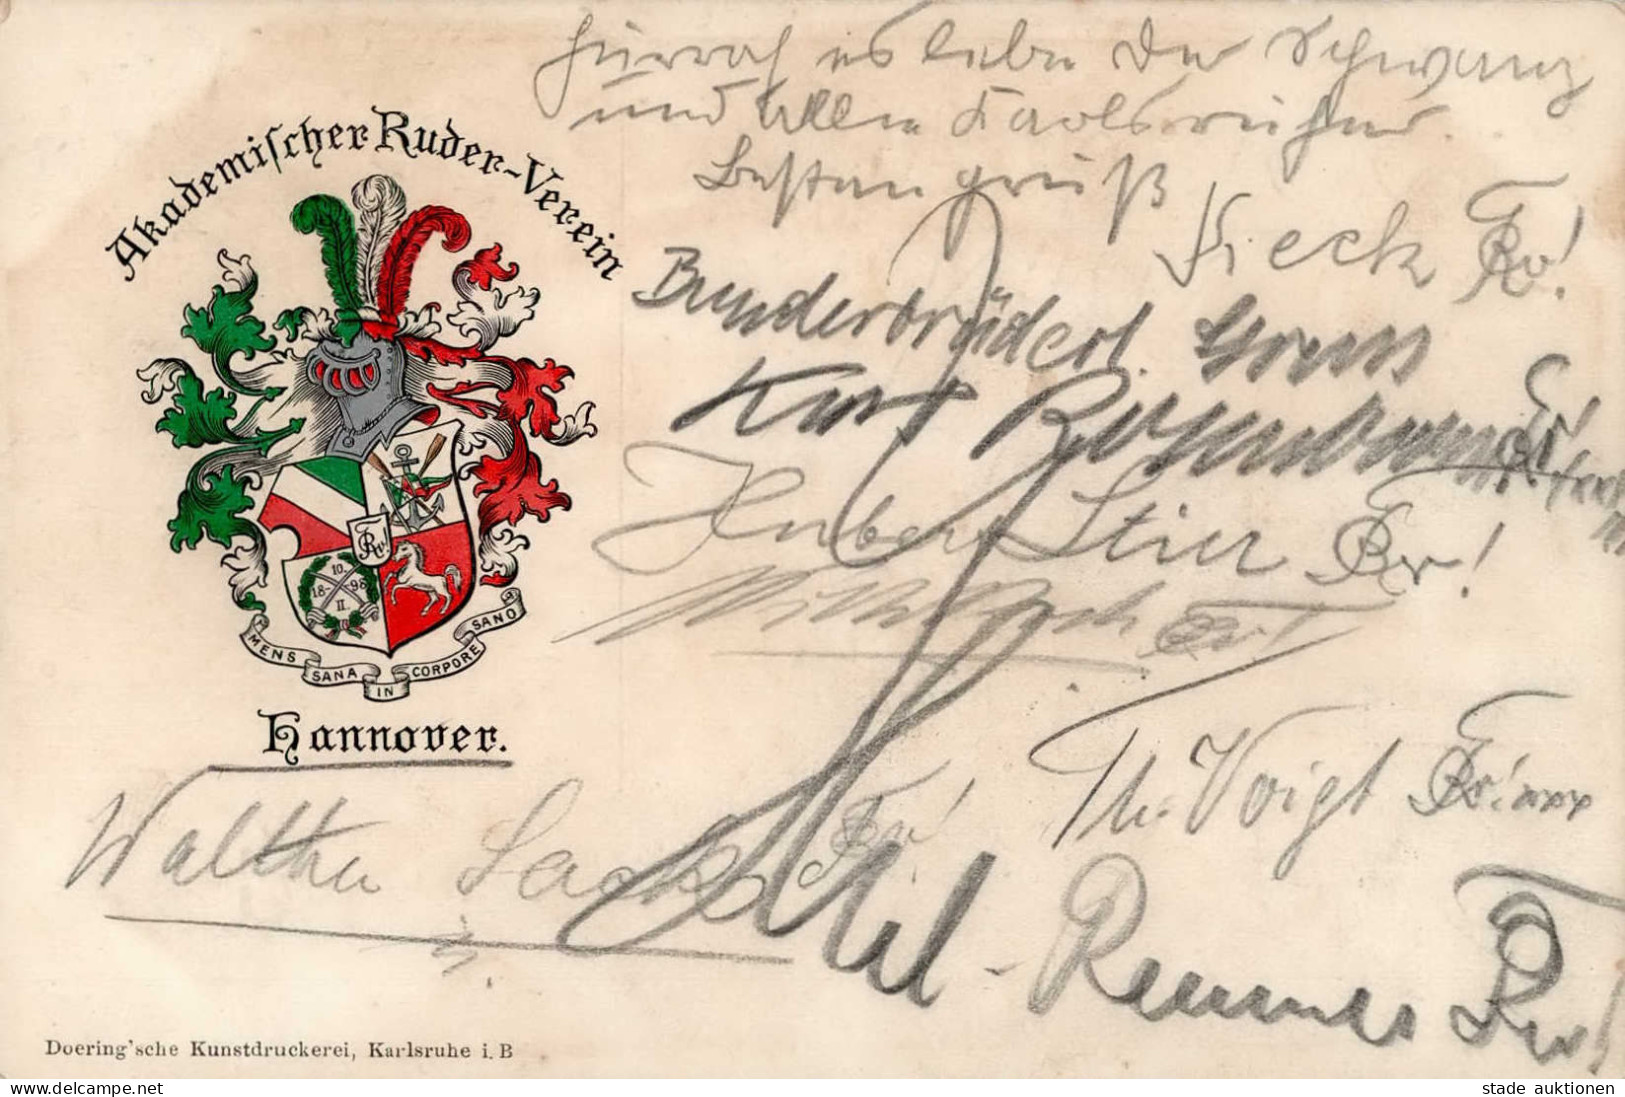 Akademischer Ruder-Verein
10.
18 98
II.
MENS SANA IN CORPORE SANO
Hannover.
Hurrah es lebe der Schwanz
und alle Karlsruher
Besten Gruß
Kieck
Bundesbrüderl. Gruss
Kurt
Hubert Stier
Th. Voigt xxx
Walther
Remmers
Doering'sche Kunstdruckerei, Karlsruhe i. B
www.delcampe.net
stade auktionen